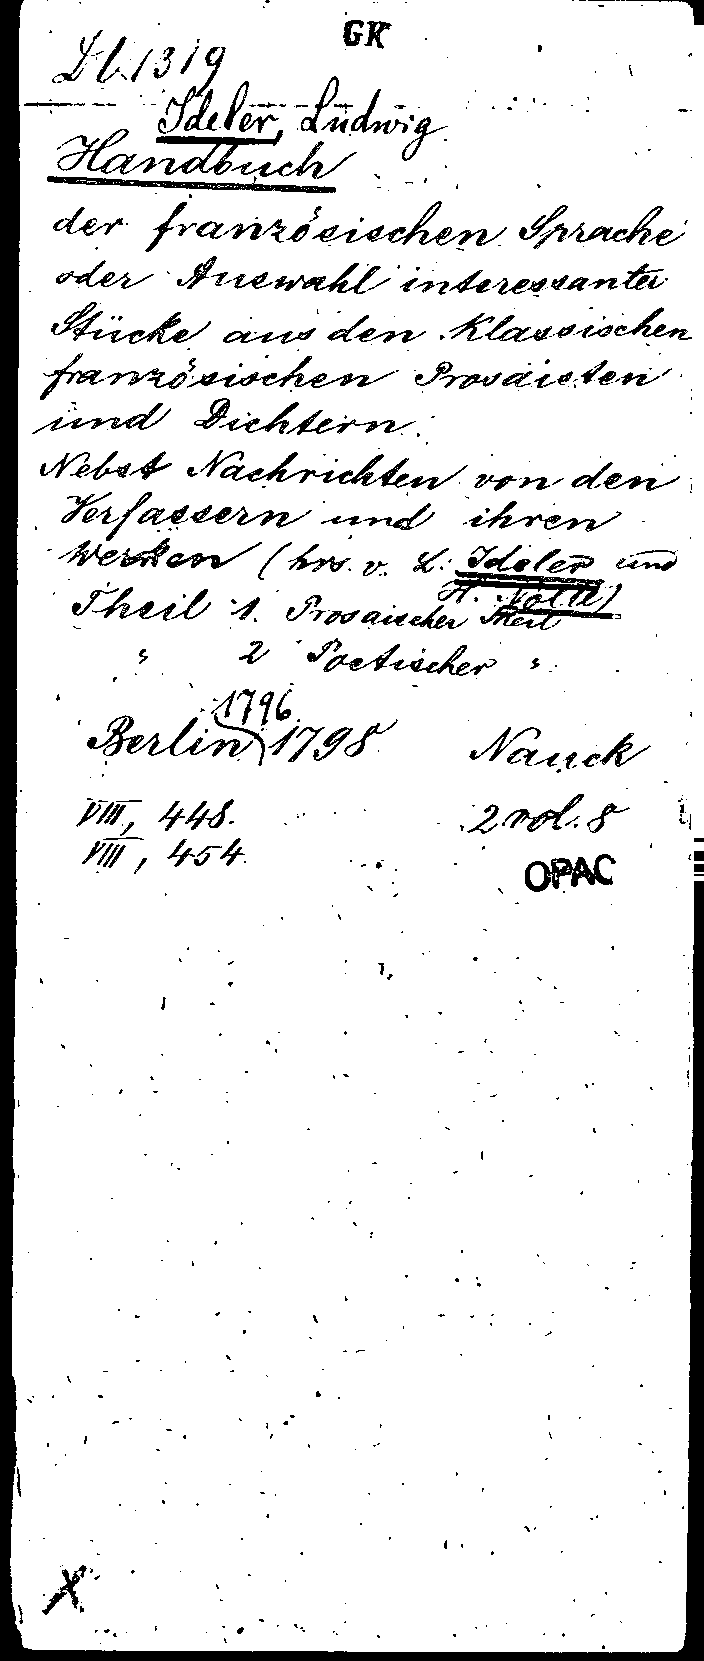 GK
Lb 1319
Ideler, Ludwig
Handbuch
der französischen Sprache
oder Auswahl interessanter
Stücke aus den Klassischen
französischen Prosaisten
und Dichtern.
Nebst Nachrichten von den
Verfassern und ihren
Werken (hrs. v. L. Ideler und
H. Nolte)
Theil 1. Prosaischer Theil
" 2 Poetischer "
1796
Berlin, 1798 Nauck
VIII, 448. 2 vol. 8
VIII, 454.
OPAC
X